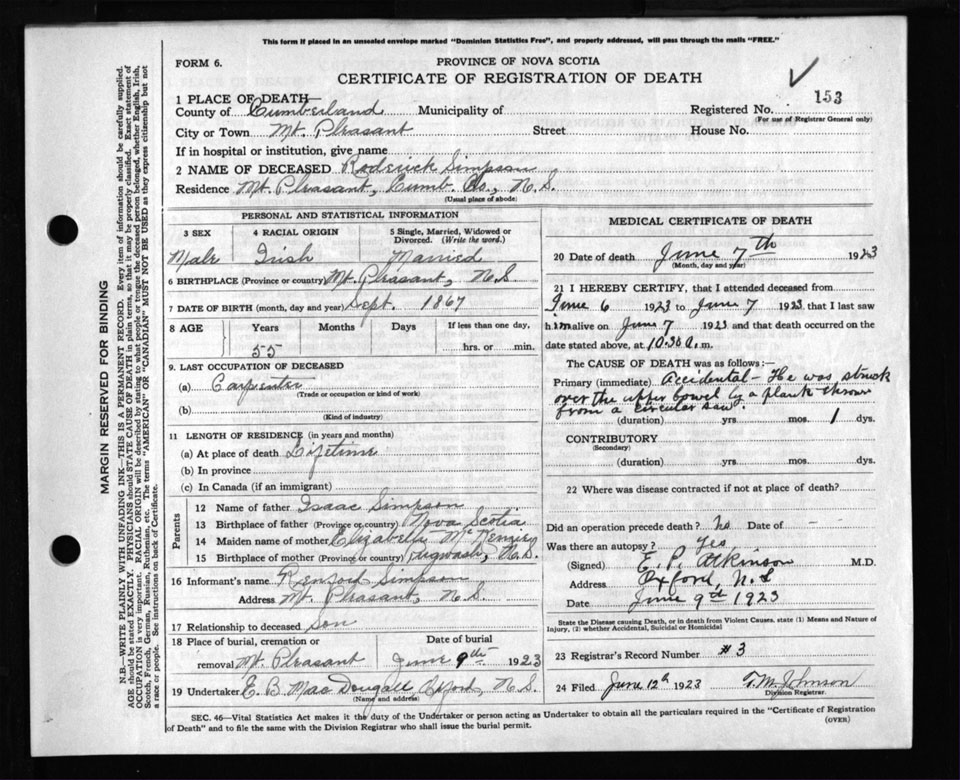 This form if placed in an unsealed envelope marked "Dominion Statistics Free", and properly addressed, will pass through the mails "FREE."
FORM 6.
PROVINCE OF NOVA SCOTIA
CERTIFICATE OF REGISTRATION OF DEATH
1 PLACE OF DEATH
County of Cumberland Municipality of Registered No. 153
(For use of Registrar General only)
City or Town Mt. Pleasant Street House No.
If in hospital or institution, give name
2 NAME OF DECEASED Roderick Simpson
Residence Mt. Pleasant, Cumb. Co., N.S.
(Usual place of abode)
PERSONAL AND STATISTICAL INFORMATION
3 SEX 4 RACIAL ORIGIN 5 Single, Married, Widowed or Divorced. (Write the word.)
Male Irish Married
6 BIRTHPLACE (Province or country) Mt. Pleasant, N.S.
7 DATE OF BIRTH (month, day and year) Sept. 1867
8 AGE Years Months Days If less than one day,
55 hrs. or min.
9. LAST OCCUPATION OF DECEASED
(a) Carpenter
(Trade or occupation or kind of work)
(b)
(Kind of industry)
11 LENGTH OF RESIDENCE (in years and months)
(a) At place of death Lifetime
(b) In province
(c) In Canada (if an immigrant)
Parents
12 Name of father Isaac Simpson
13 Birthplace of father (Province or country) Nova Scotia
14 Maiden name of mother Elizabeth McKenzie
15 Birthplace of mother (Province or country) Pugwash, N.S.
16 Informant's name Renford Simpson
Address Mt. Pleasant, N.S.
17 Relationship to deceased Son
18 Place of burial, cremation or Date of burial
removal Mt. Pleasant June 9th 1923
19 Undertaker E. B. MacDougall, Oxford, N.S.
(Name and address)
MEDICAL CERTIFICATE OF DEATH
20 Date of death June 7th 1923
(Month, day and year)
21 I HEREBY CERTIFY, that I attended deceased from
June 6 1923 to June 7 1923 that I last saw
him alive on June 7 1923 and that death occurred on
date stated above, at 10.30 a.m.
The CAUSE OF DEATH was as follows:—
Primary (immediate) Accidental - He was struck
over the upper bowel by a plank thrown
from a circular saw.
(duration) yrs. mos. 1 dys.
CONTRIBUTORY
(Secondary)
(duration) yrs. mos. dys.
22 Where was disease contracted if not at place of death?
Did an operation precede death? No Date of -
Was there an autopsy? yes
(Signed) E. P. Atkinson M.D.
Address Oxford, N.S
Date June 9th 1923
State the Disease causing Death, or in death from Violent Causes, state (1) Means and Nature of
Injury, (2) whether Accidental, Suicidal or Homicidal
23 Registrar's Record Number #3
24 Filed June 12th 1923 T. M. Johnson
Division Registrar.
SEC. 46—Vital Statistics Act makes it the duty of the Undertaker or person acting as Undertaker to obtain all the particulars required in the "Certificate of Registration
of Death" and to file the same with the Division Registrar who shall issue the burial permit.
(OVER)
MARGIN RESERVED FOR BINDING
N.B.—WRITE PLAINLY WITH UNFADING INK—THIS IS A PERMANENT RECORD. Every item of information should be carefully supplied.
AGE should be stated EXACTLY. PHYSICIANS should STATE CAUSE OF DEATH in plain terms, so that it may be properly classified. Exact statement of
OCCUPATION is very important. RACIAL ORIGIN will be described by stating to what people or tongue the deceased person belonged, whether English, Irish,
Scotch, French, German, Russian, Ruthenian, etc. The terms "AMERICAN" OR "CANADIAN" MUST NOT BE USED as they express citizenship but not
a race or people. See instructions on back of Certificate.